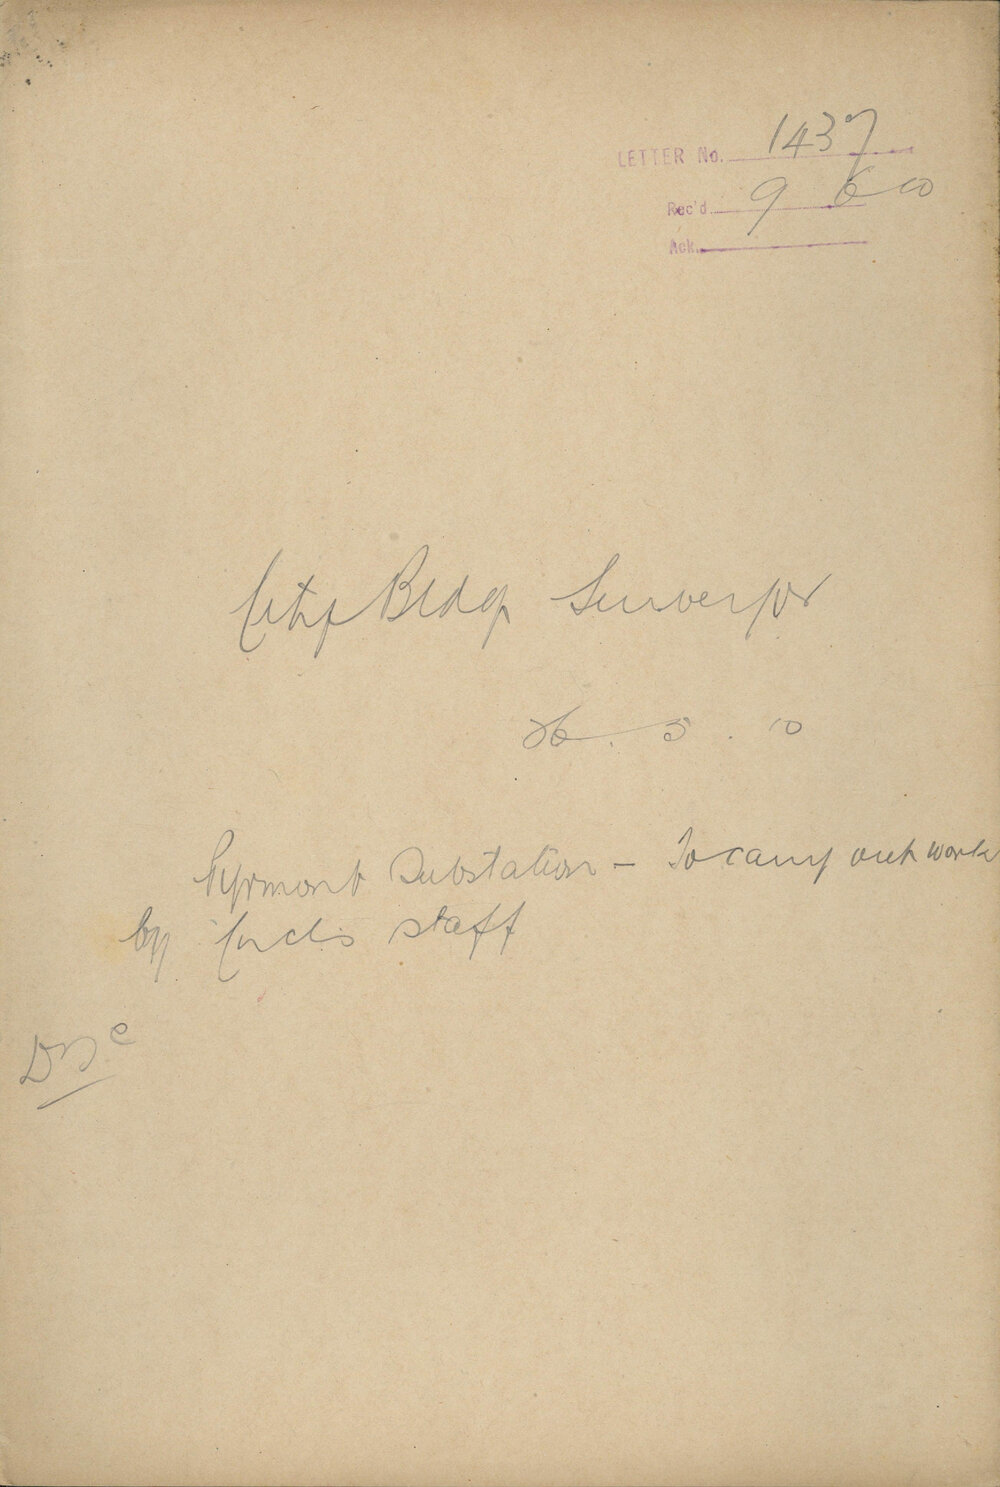 LETTER No. 1437
Rec'd. 9 6 10
Ack.
City Bldg Surveyor
26. 5. 10
Pyrmont Substation – To carry out work
by Cncls staff